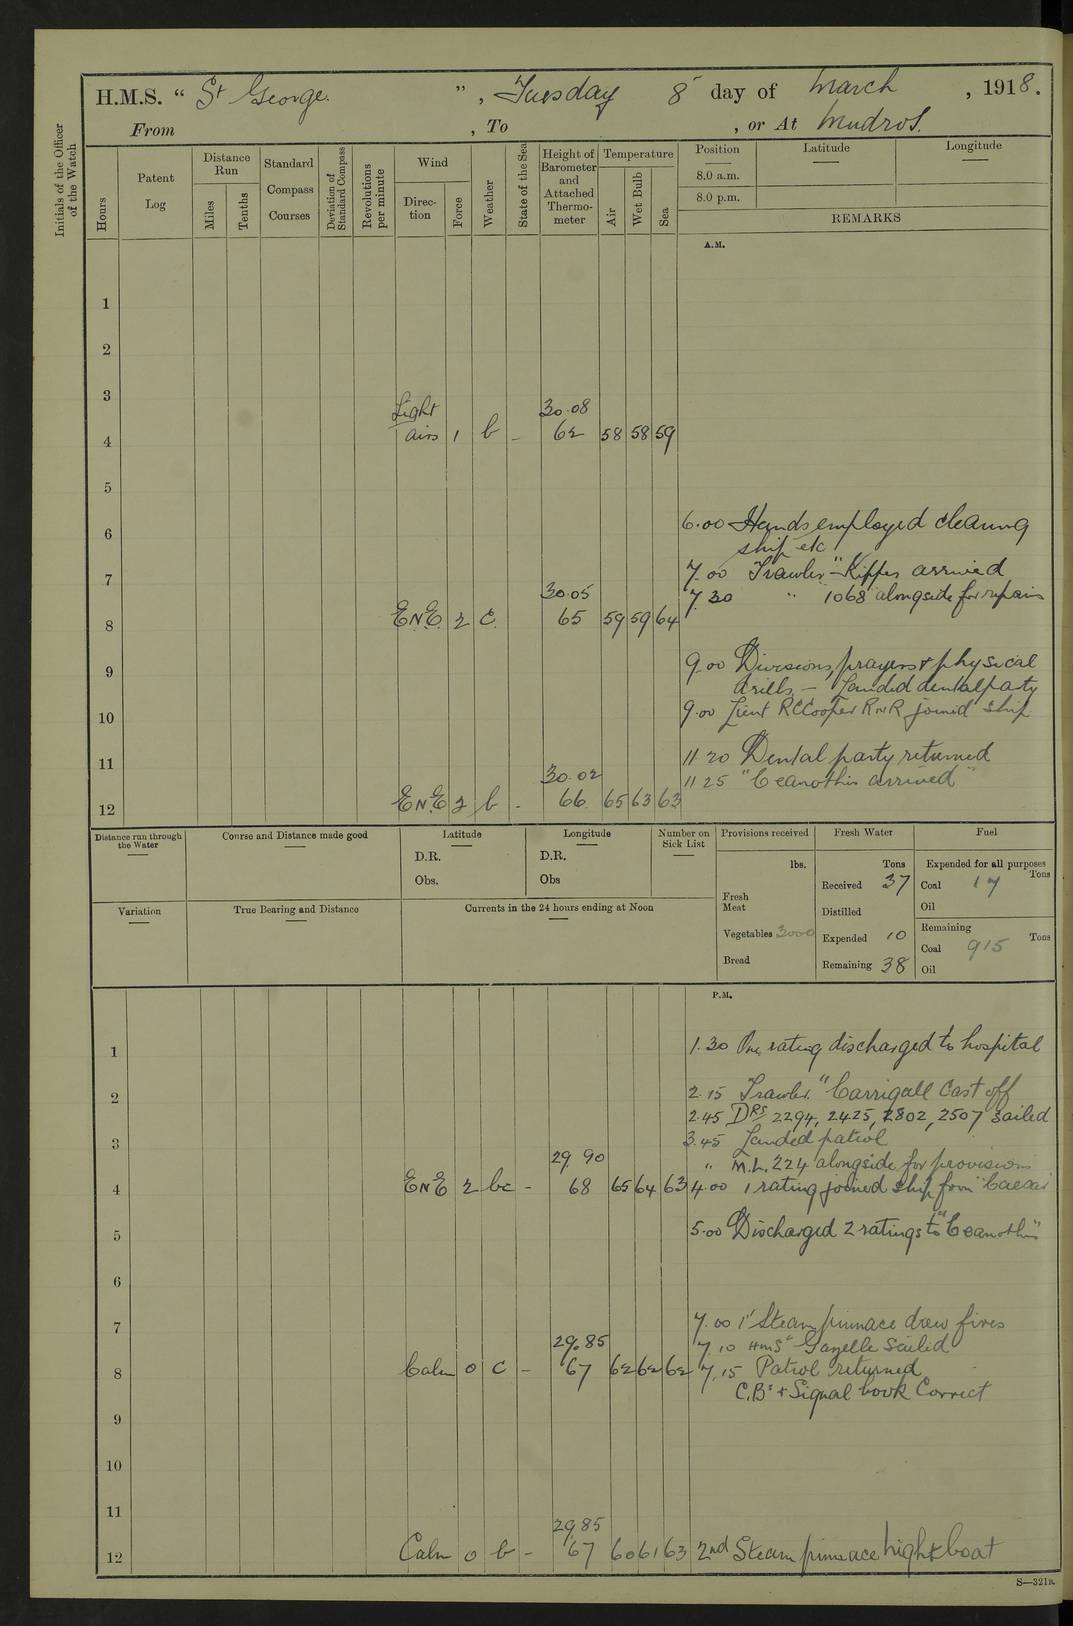 H.M.S. “ St George. ” , Tuesday 8 day of March , 1918.
From , To , or At Mudros.
Initials of the Officer of the Watch
Hours
Patent Log
Distance Run
Miles
Tenths
Standard Compass Courses
Deviation of Standard Compass
Revolutions per minute
Wind
Direction
Force
Weather
State of the Sea
Height of Barometer and Attached Thermometer
Temperature
Air
Wet Bulb
Sea
Position
8.0 a.m.
8.0 p.m.
Latitude
Longitude
REMARKS
A.M.
1
2
3
Light 30.08
4 airs 1 b - 62 58 58 59
5
6.00 Hands employed cleaning
6
ship etc
7 7.00 Trawler "Kipper arrived
30.05 7.30 " 1068 alongside for repairs
8 ENE 2 c. 65 59 59 64
9 9.00 Divisions, prayers & physical
drills, — Landed dental party
10 9.00 Lieut R C Cooper RNR joined ship.
11 11 20 Dental party returned
30.02 11 25 "Ceanothus arrived"
12 ENE 2 b - 66 65 63 63
Distance run through the Water
Course and Distance made good
Latitude
D.R.
Obs.
Longitude
D.R.
Obs
Number on Sick List
Provisions received
lbs.
Fresh Meat
Vegetables 3000
Bread
Fresh Water
Tons
Received 37
Distilled
Expended 10
Remaining 38
Fuel
Expended for all purposes
Coal 17 Tons
Oil
Remaining
Coal 915 Tons
Oil
Variation
True Bearing and Distance
Currents in the 24 hours ending at Noon
P.M.
1 1.30 One rating discharged to hospital
2 2.15 Trawler "Carrigall Cast off
2.45 DRS 2294, 2425, 2802, 2507 sailed
3 3.45 Landed patrol
29.90 " M.L. 224 alongside for provisions
4 ENE 2 bc - 68 65 64 63 4.00 1 rating joined ship from "Caesar
5 5.00 Discharged 2 ratings to "Ceanothus"
6
7 7.00 1st Steam pinnace drew fires
29.85 7.10 HMS "Gazelle sailed
8 Calm 0 c - 67 62 62 62 7.15 Patrol returned
C.Bs & Signal book Correct
9
10
11
29.85
12 Calm 0 b - 67 60 61 63 2nd Steam pinnace night boat
S—321B.